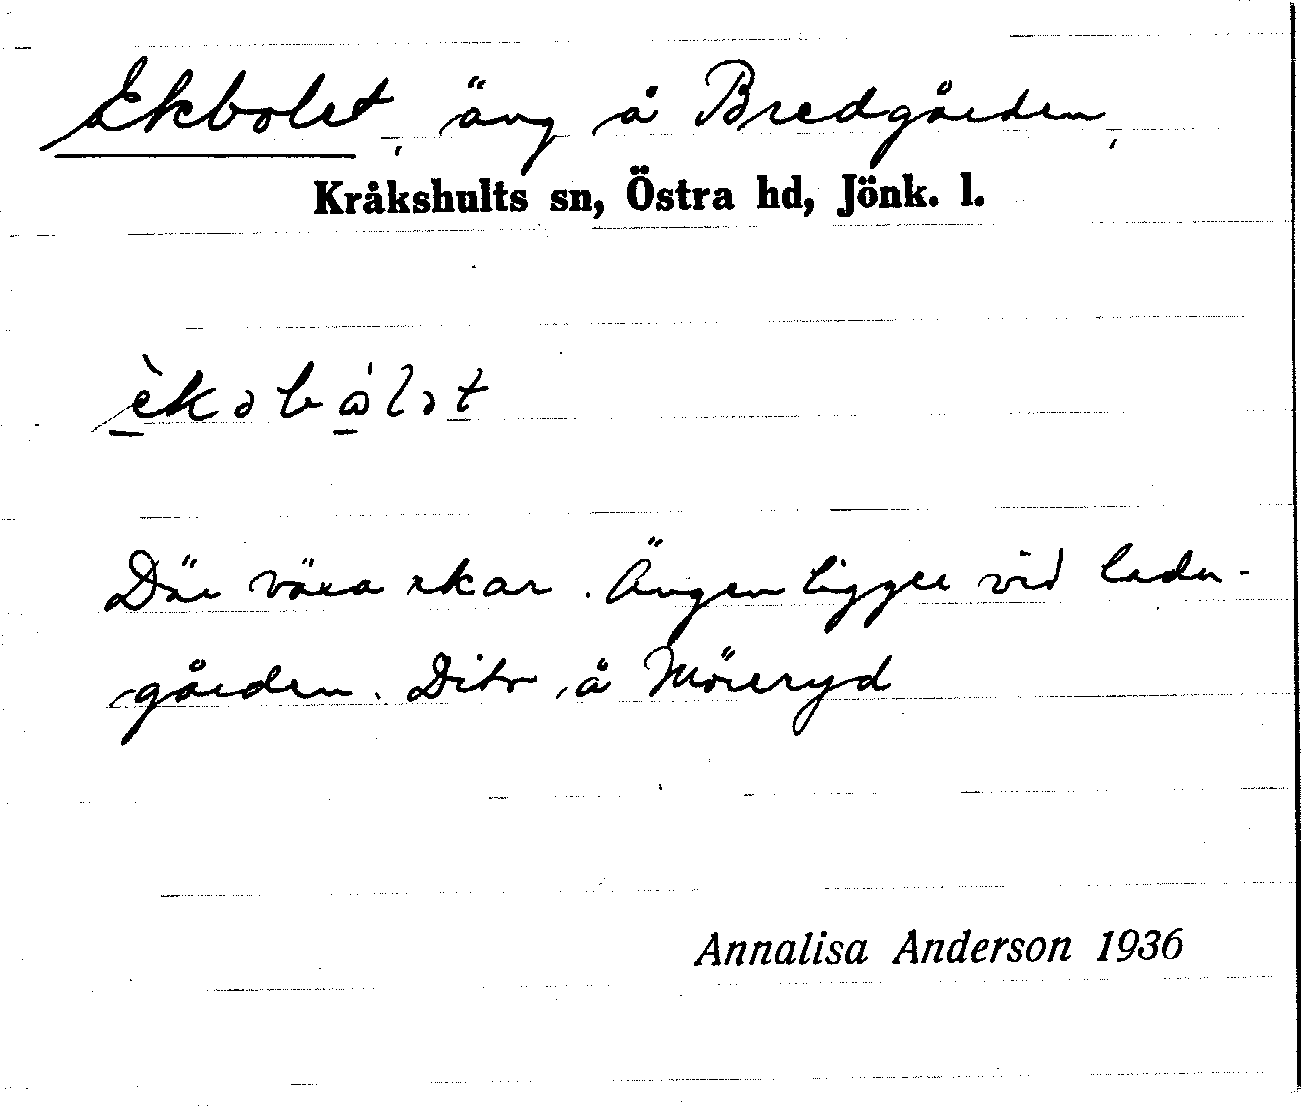 Ekbolet, äng å Bredgården,
Kråkshults sn, Östra hd, Jönk. l.
èkəbω̊lət
Där växa ekar. Ängen ligger vid ladu-
gården. Dito å Möreryd
Annalisa Anderson 1936